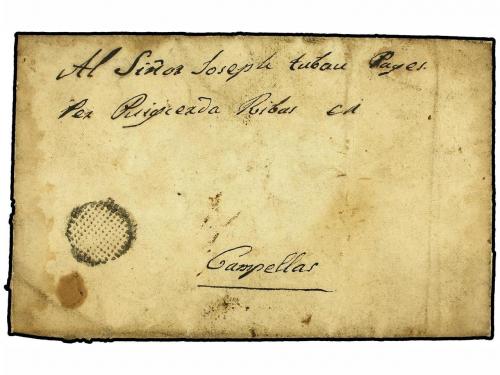 Al Siñor Joseph tubau Pages
Per Puigcerda Ribas en
Campellas